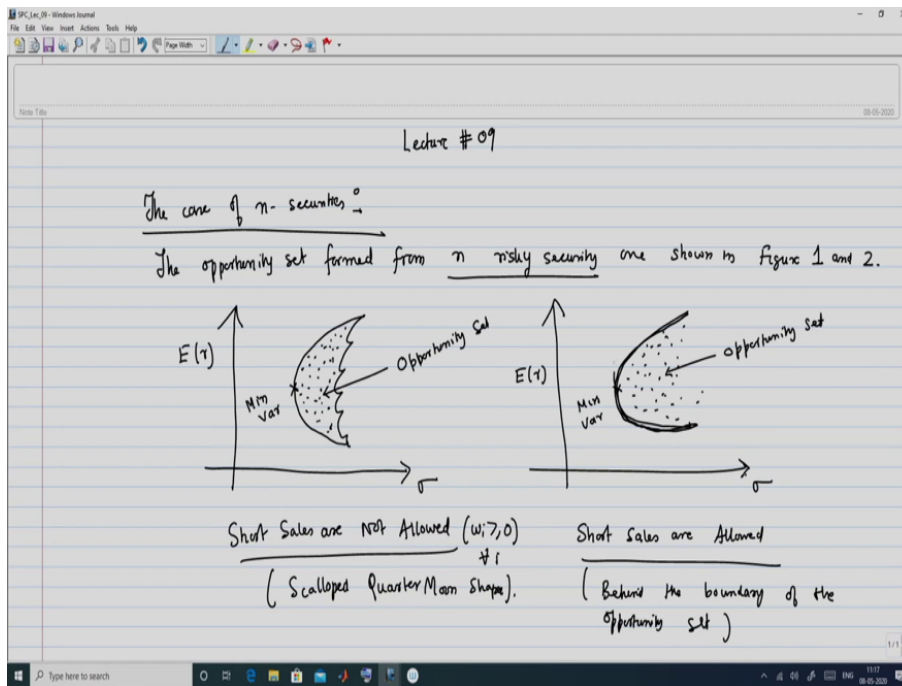 SPC_Lec_09 - Windows Journal
File Edit View Insert Actions Tools Help
Page Width
Note Title
08-05-2020
Lecture # 09
The case of n- securities :
The opportunity set formed from n risky security are shown in figure 1 and 2.
E(r)
Opportunity Set
Min
Var
σ
E(r)
opportunity set
Min
Var
σ
Short Sales are Not Allowed (wi ≥ 0)
∀ i
( Scalloped Quarter Moon Shape).
Short Sales are Allowed
( Behind the boundary of the
opportunity set )
1/1
Type here to search
ENG
11:17
08-05-2020